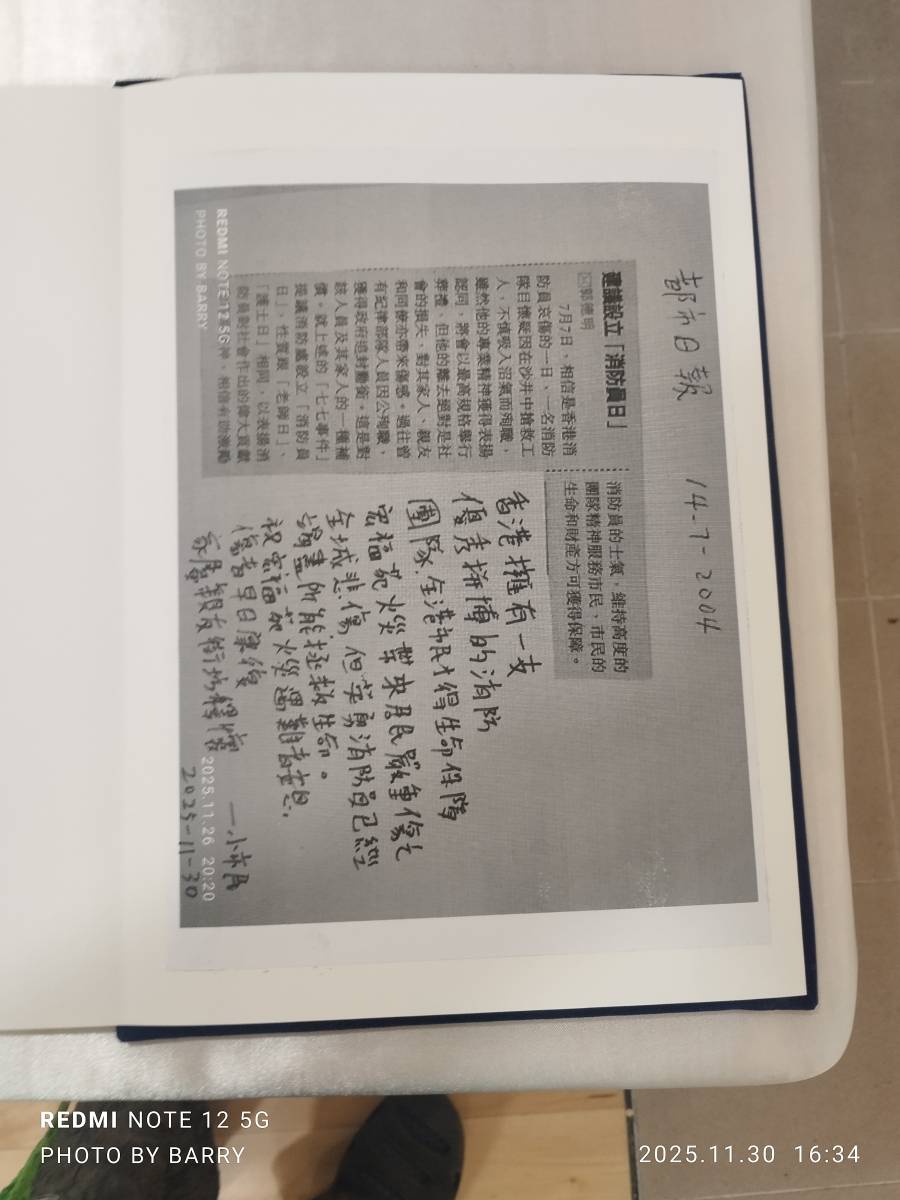 都市日報 14-7-2004
建議設立「消防員日」
郭德明
7月7日，相信是香港消
防員哀傷的一日，一名消防
隊目懷疑因在沙井中搶救工
人，不慎吸入沼氣而殉職，
雖然他的專業精神獲得表揚
認同，將會以最高規格舉行
葬禮，但他的離去絕對是社
會的損失，對其家人、親友
和同僚亦帶來傷感。過往曾
有紀律部隊人員因公殉職，
獲得政府追封勳銜，這是對
該人員及其家人的一種補
償。就上述的「七七事件」
提議消防處設立「消防員
日」，性質跟「老師日」、
「護士日」相同，以表揚消
防員對社會作出的偉大貢獻
神，相信有助激勵
消防員的士氣，維持高度的
團隊精神服務市民，市民的
生命和財產方可獲得保障。
香港擁有一支
優秀拼博的消防
團隊.全港市民才得生命保障
宏福苑火災帶來居民嚴重傷亡
全城悲傷 但英勇消防員已經
竭盡所能拯救生命。
祝宏福苑火災遇難者安息.
傷者早日康復
家屬親友街坊釋懷
一小市民
2025-11-30
REDMI NOTE 12 5G
PHOTO BY BARRY
2025.11.26 20:20
REDMI NOTE 12 5G
PHOTO BY BARRY
2025.11.30 16:34